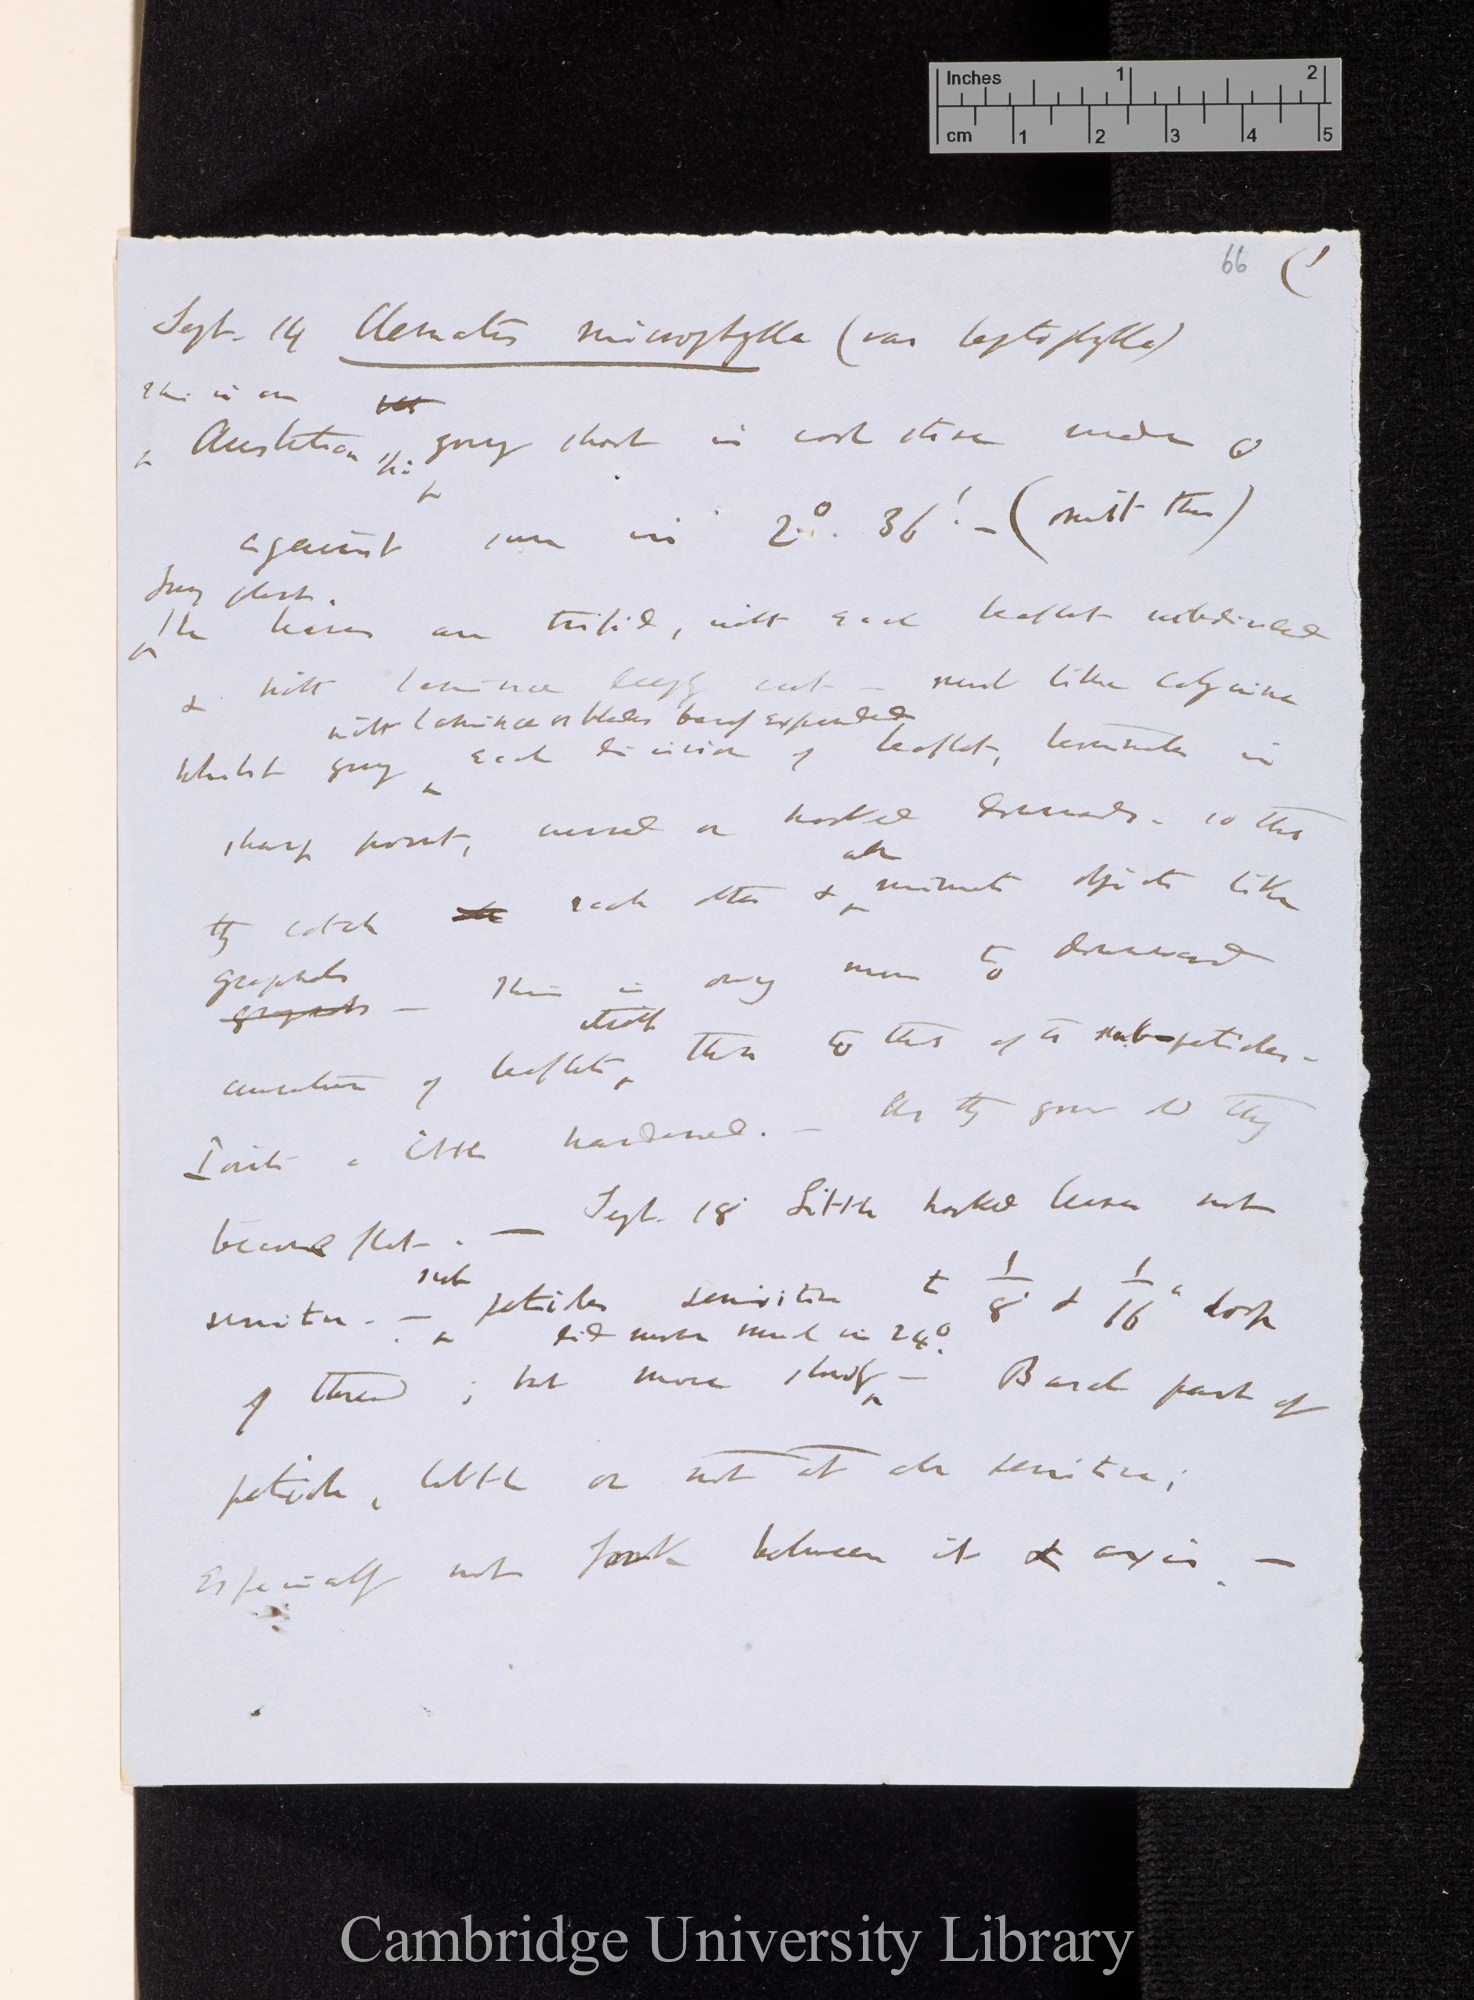 Inches 1 2
cm 1 2 3 4 5
66 (1
Sept. 14 Clematis microphylla (var leptophylla)
This is an
Australian young shoot in cool stove made a O
against sun in 2°. 36'. – (omit this)
Young plant.
The leaves are trifid, with each leaflet subdivided
& with laminæ deeply cut – much like calycina
with laminæ or blades barely expanded
whilst young each division of leaflet, terminates in
sharp point, curved or hooked downwards. so that
all
they catch each other & minute objects like
grapnels
– This is owing more to downward
itself
curvature of leaflets, than to that of the sub-petioles –
I write a little hardened. – As they grow old they
become flat. – Sept. 18 Little hooked leaves not
sub
sensitive. – petioles sensitive to 1/8 & 1/16 loop
did move much in 24°.
of thread; but move slowly – Basal part of
petiole, little or not at all sensitive;
Especially not fork between it & axis. –
Cambridge University Library